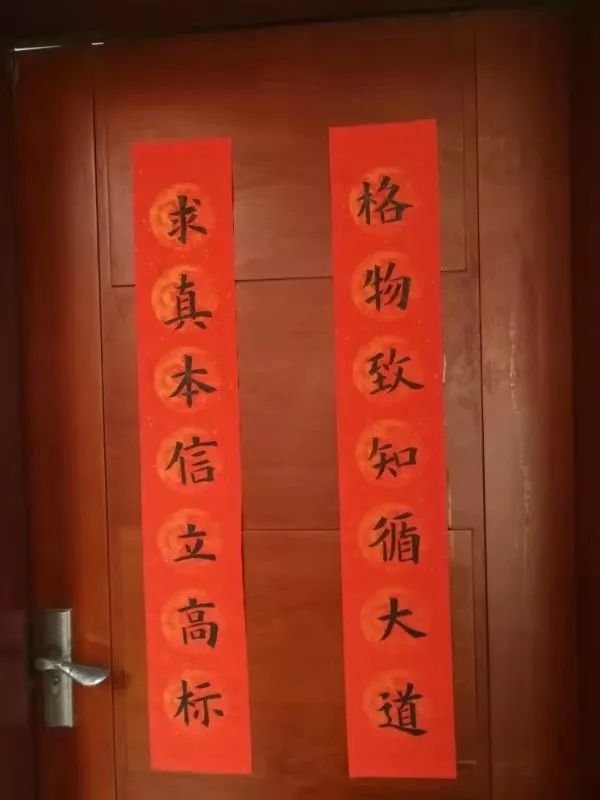 格物致知循大道
求真本信立高标